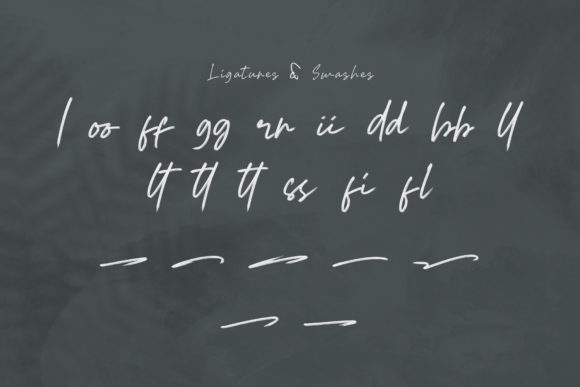 Ligatures & Swashes
l oo ff gg rr ii dd bb ll
lt tl tt ss fi fl